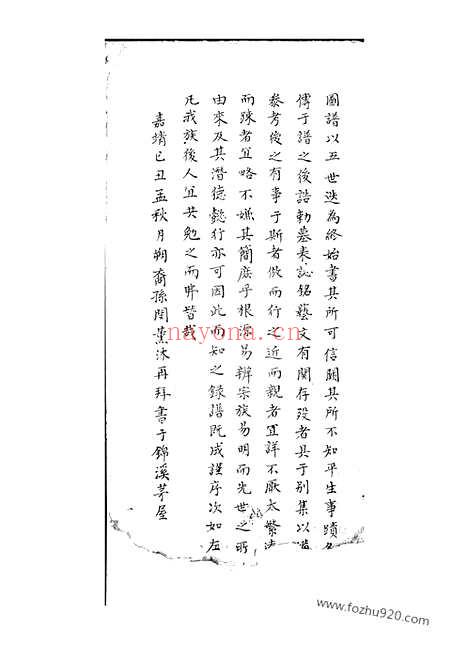 圖譜以五世迭為終始書其所可信闕其所不知平生事蹟各
傳于譜之後誥勅墓表誌銘藝文有関存没者具于別集以備
參考後之有事于斯者倣而行之近而親者宜詳不厭太繁遠
而踈者宜略不嫌其簡庶乎根源易辦宗族易明而先世之所
由來及其潜德懿行亦可因此而知之錄譜既成謹序次如左
凡我族後人宜共勉之而毋
哉
嘉靖己丑孟秋月朔裔孫閔
沐再拜書于錦溪茅屋
nayona.cn
www.fozhu920.com